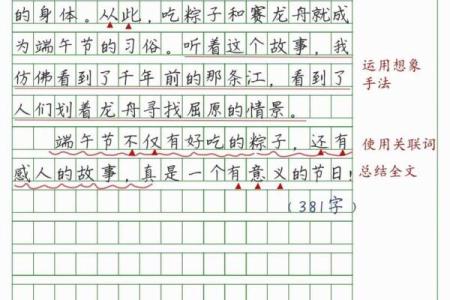 的身体。从此,吃粽子和赛龙舟就成
为端午节的习俗。听着这个故事,我
仿佛看到了千年前的那条江,看到了
人们划着龙舟寻找屈原的情景。
运用想象
手法
端午节不仅有好吃的粽子,还有
感人的故事,真是一个有意义的节日!
使用关联词
总结全文
(381字)